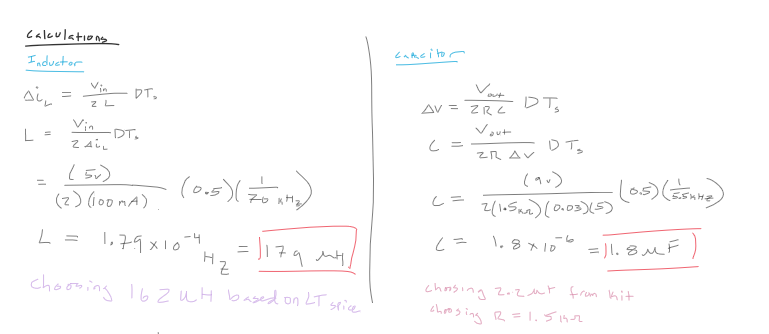 Calculations
Inductor
Δi_L = V_in / 2 L DT_s
L = V_in / 2 Δi_L DT_s
= (5v) / (2)(100mA) (0.5)(1 / 70 kHz)
L = 1.79 x 10^-4 Hz = 179 μH
choosing 162 uH based on LT spice
Capacitor
ΔV = V_out / 2 R C D T_s
C = V_out / 2R ΔV D T_s
C = (9v) / 2(1.5kΩ)(0.03)(5) (0.5)(1 / 5.5kHz)
C = 1.8 x 10^-6 = 1.8 μF
choosing 2.2 μF from kit
choosing R = 1.5 kΩ